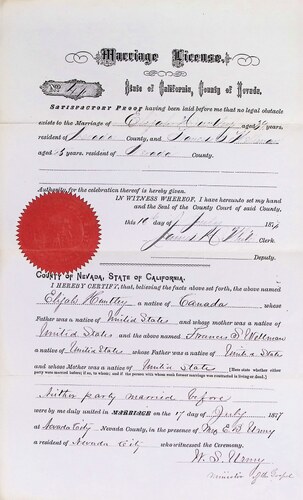 Marriage License.
No.
State of California, County of Nevada.
SATISFACTORY PROOF having been laid before me that no legal obstacle
exists to the Marriage of Elijah Huntley aged years,
resident of County, and
aged years, resident of County.
Authority for the celebration thereof is hereby given.
IN WITNESS WHEREOF, I have hereunto set my hand
and the Seal of the County Court of said County,
this day of
Clerk
Deputy.
COUNTY OF NEVADA, STATE OF CALIFORNIA.
I HEREBY CERTIFY, that, believing the facts above set forth, the above named
Elijah Huntley a native of Canada whose
Father was a native of United States and whose mother was a native of
United States and the above named Frances S. Wellman
a native of United States whose Father was a Native of United States
and whose Mother was a native of United State
Neither party married before
were by me duly united in MARRIAGE on the 17 day of July 1877
at Nevada City, Nevada County, in the presence of Mrs C. B. Urmy
a resident of Nevada City who witnessed the Ceremony.
W. S. Urmy
Minister of the Gospel